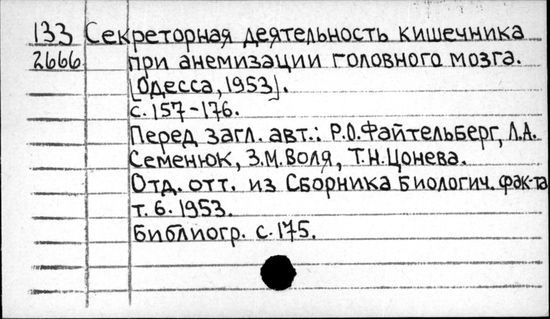 133 Секреторная деятельность кишечника
2666 при анемизации головного мозга.
[Одесса, 1953].
с. 157-176.
Перед загл. авт.: Р.О. Файтельберг, Л.А.
Семенюк, З.М. Воля, Т.Н. Цонева.
Отд. отт. из Сборника Биологич. фак-та
т. 6. 1953.
Библиогр. с. 175.